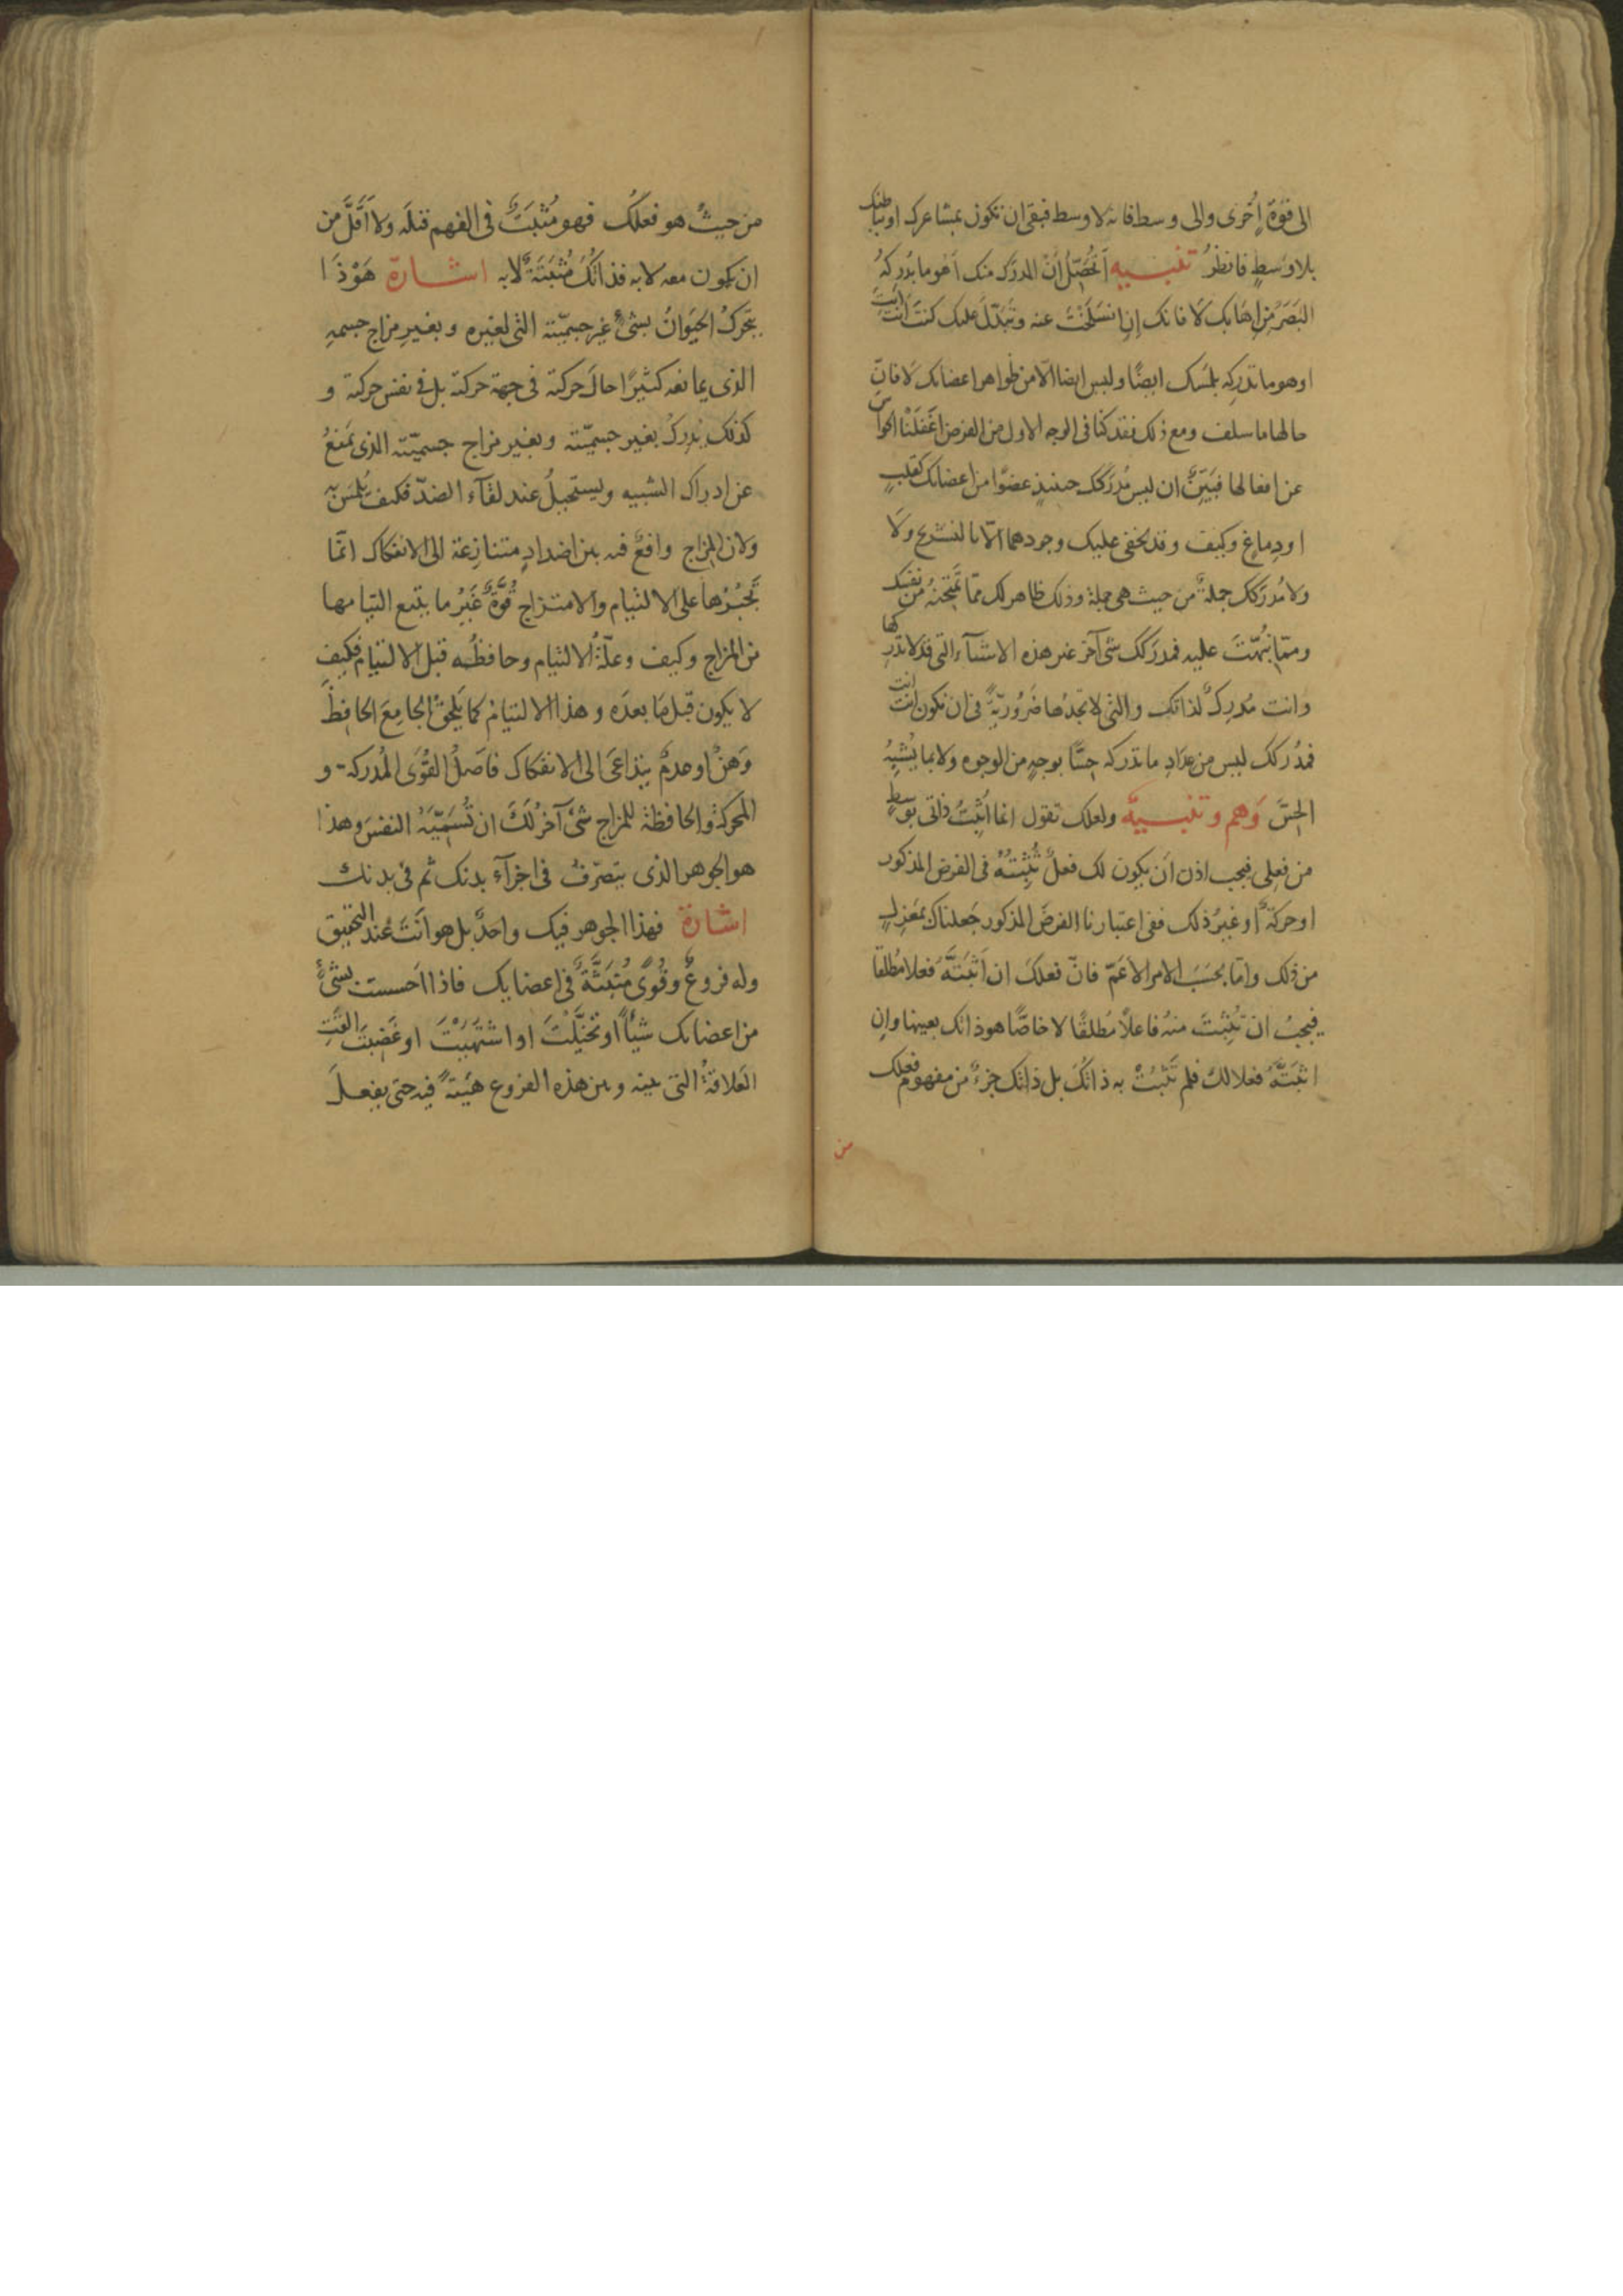 الى قوّة اُخرى والى وسط فانه لا وسط فبقى ان تكون بمشاعرك او بباطنك
بلا وسطٍ فانظر تنبيه أتُحصّل أنّ المدرَك منك أهُو ما يُدركهُ
البَصَرُ مِن اِهَابك لَا فانك إن انسَلَخْتَ عنه وتَبَدّلَ عليك كنتَ انتَ انتَ
او هو ما تدركه بلمسك ايضًا وليس ايضا الّا من ظواهر اعضائك لَا فانّ
حالها ما سلف ومع ذلك فقد كنّا فى الوجه الاول من الفرض اَغْفَلْنا الحواسّ
عن افعالها فبَيّنٌ ان ليس مُدرَكك حينئذٍ عضوًا من اعضائك كقلبٍ
او دِماغٍ وكيف وقد يخفى عليك وجودهما الّا بالتشريح ولَا
ولا مُدرَكك جملةً من حيث هى جملة وذلك ظاهر لك ممّا تمتحنهُ من نفسك
وممّا نُبّهتَ عليه فمدرَكك شئ آخر غير هذه الاشياء التى قد لا تدركها
وانت مُدرِكٌ لذاتك والتى لا تجدُها ضَرُوريّةً فى ان تكون انت انت
فمُدرَكك ليس من عِدَادِ ما تدركه حِسًّا بوجهٍ من الوجوه ولا بما يُشْبِهُ
الحِسَّ وَهم وتنبيهٌ ولعلك تقول انما اُثْبِتُ ذاتى بوَسَطٍ
من فعلى فيجب اذن اَن يكون لك فعلٌ تُثْبِتُهُ فى الفرض المذكور
او حركةٌ او غيرُ ذلك ففى اعتبارنا الفرضَ المذكور جَعلناك بمَعْزِلٍ
من ذلك وامّا بحَسَبِ الامر الاَعَمّ فانّ فعلَك ان اَثْبَتَّهُ فعلا مُطلقا
فيجبُ ان تُثْبِتَ منهُ فاعلاً مُطلقًا لا خاصًّا هو ذاتك بعينها وان
اثبَتَّهُ فعلا لك فلم تُثبِتْ به ذاتَكَ بل ذاتك جزءٌ من مفهوم فعلك
من
من حيثُ هو فعلُك فهو مُثْبَتٌ فى الفهم قبلَه ولَا اَقَلَّ من
ان يكون معه لا به فذاتُكَ مُثْبَتَةٌ لا به اشارة هَوْ ذَا
يتحّركُ الحَيَوانُ بشئٍ غيرِ جسميّته التى لغيره وبغيرِ مزاج جسمهِ
الذى يمانعه كثيرًا حالَ حركته فى جهة حركته بل فى نفس حركته و
كذلك يُدرِكُ بغير جسميّته وبغير مزاج جسميّته الذى يَمنعُ
عن ادراك الشبيه ويستحيلُ عند لقآء الضدّ فكيف يُلمَسُ به
ولانّ المزاج واقعٌ فيه بين اضدادٍ متنازعة الى الانفكاك انّما
تُجْبِرُها على الالتيام والامتزاج قوّةٌ غَيرُ ما يتبع التيامها
من المزاج وكيف وعلّةُ الالتيام وحافظُه قبل الالتيام فكيف
لا يكون قبلَ ما بعدَه وهذا الالتيام كما يَلحقُ الجامعَ الحافِظَ
وَهْنٌ او عدمٌ يتداعَى الى الانفكاك فاصلُ القُوَى المُدركة و
المحركة والحافظة للمزاج شئٌ آخرُ لَكَ ان تُسَمّيَهُ النفسَ وهذا
هو الجوهر الذى يتصرّفُ فى اجزآء بدنك ثم فى بدنك
اشارة فهذا الجوهر فيك واحدٌ بل هو انتَ عند التحقيق
وله فروعٌ وقُوىً مُنْبَثَّةٌ فى اعضايك فاذا احسست بشئٍ
من اعضائك شيأً او تخيَّلْتَ او اشتَهَيْتَ او غَضِبتَ القَتِ
العَلاقةُ التى بينه وبين هذه الفروع هَيْئةً فيه حتى يفعلَ